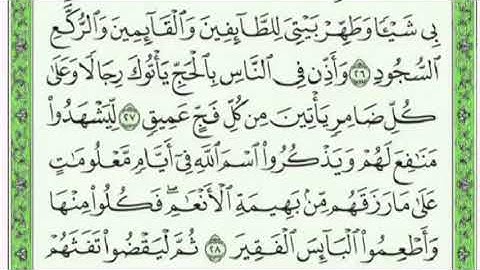 بِى شَيْـًٔا وَطَهِّرْ بَيْتِىَ لِلطَّآئِفِينَ وَٱلْقَآئِمِينَ وَٱلرُّكَّعِ
ٱلسُّجُودِ ٢٦ وَأَذِّن فِى ٱلنَّاسِ بِٱلْحَجِّ يَأْتُوكَ رِجَالًا وَعَلَىٰ
كُلِّ ضَامِرٍ يَأْتِينَ مِن كُلِّ فَجٍّ عَمِيقٍ ٢٧ لِّيَشْهَدُوا۟
مَنَـٰفِعَ لَهُمْ وَيَذْكُرُوا۟ ٱسْمَ ٱللَّهِ فِىٓ أَيَّامٍ مَّعْلُومَـٰتٍ
عَلَىٰ مَا رَزَقَهُم مِّنۢ بَهِيمَةِ ٱلْأَنْعَـٰمِ ۖ فَكُلُوا۟ مِنْهَا
وَأَطْعِمُوا۟ ٱلْبَآئِسَ ٱلْفَقِيرَ ٢٨ ثُمَّ لْيَقْضُوا۟ تَفَثَهُمْ